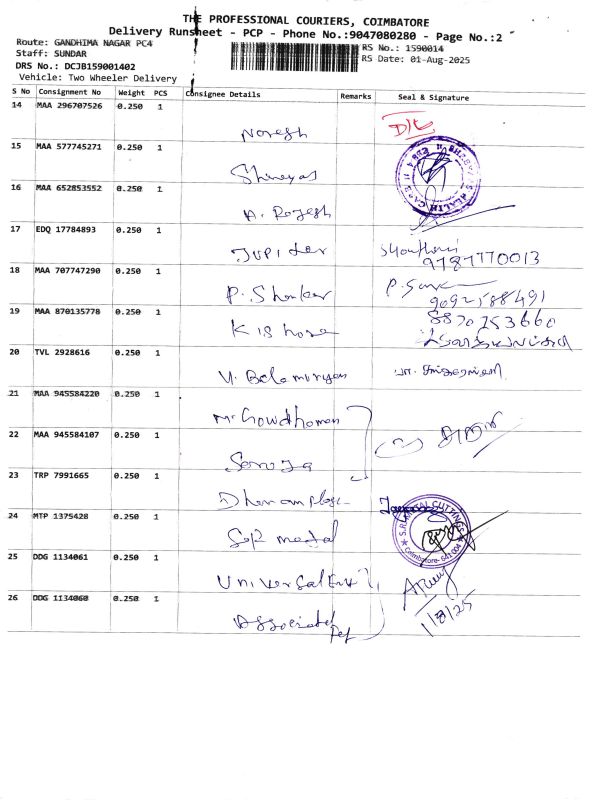 THE PROFESSIONAL COURIERS, COIMBATORE
Delivery Runsheet - PCP - Phone No.:9047080280 - Page No.:2
Route: GANDHIMA NAGAR PC4
RS No.: 1590014
Staff: SUNDAR
RS Date: 01-Aug-2025
DRS No.: DCJB159001402
Vehicle: Two Wheeler Delivery
S No Consignment No Weight PCS Consignee Details Remarks Seal & Signature
14 MAA 296707526 0.250 1
Noresh
15 MAA 577745271 0.250 1
Shreyas
16 MAA 652853552 0.250 1
A. Rajesh
17 EDQ 17784893 0.250 1
Jupiter
9787770013
18 MAA 707747290 0.250 1
P. Shankar
9092588491
19 MAA 870135778 0.250 1
8870253660
Kishore
20 TVL 2928616 0.250 1
V. Balamurugan
21 MAA 945584220 0.250 1
M. Gowdhaman
22 MAA 945584107 0.250 1
Saroja
23 TRP 7991665 0.250 1
24 MTP 1375428 0.250 1
S.R. METAL CUTTINGS
Coimbatore- 641 004
SR metal
25 DDG 1134061 0.250 1
Universal
26 DDG 1134060 0.250 1
1/8/25
Associated